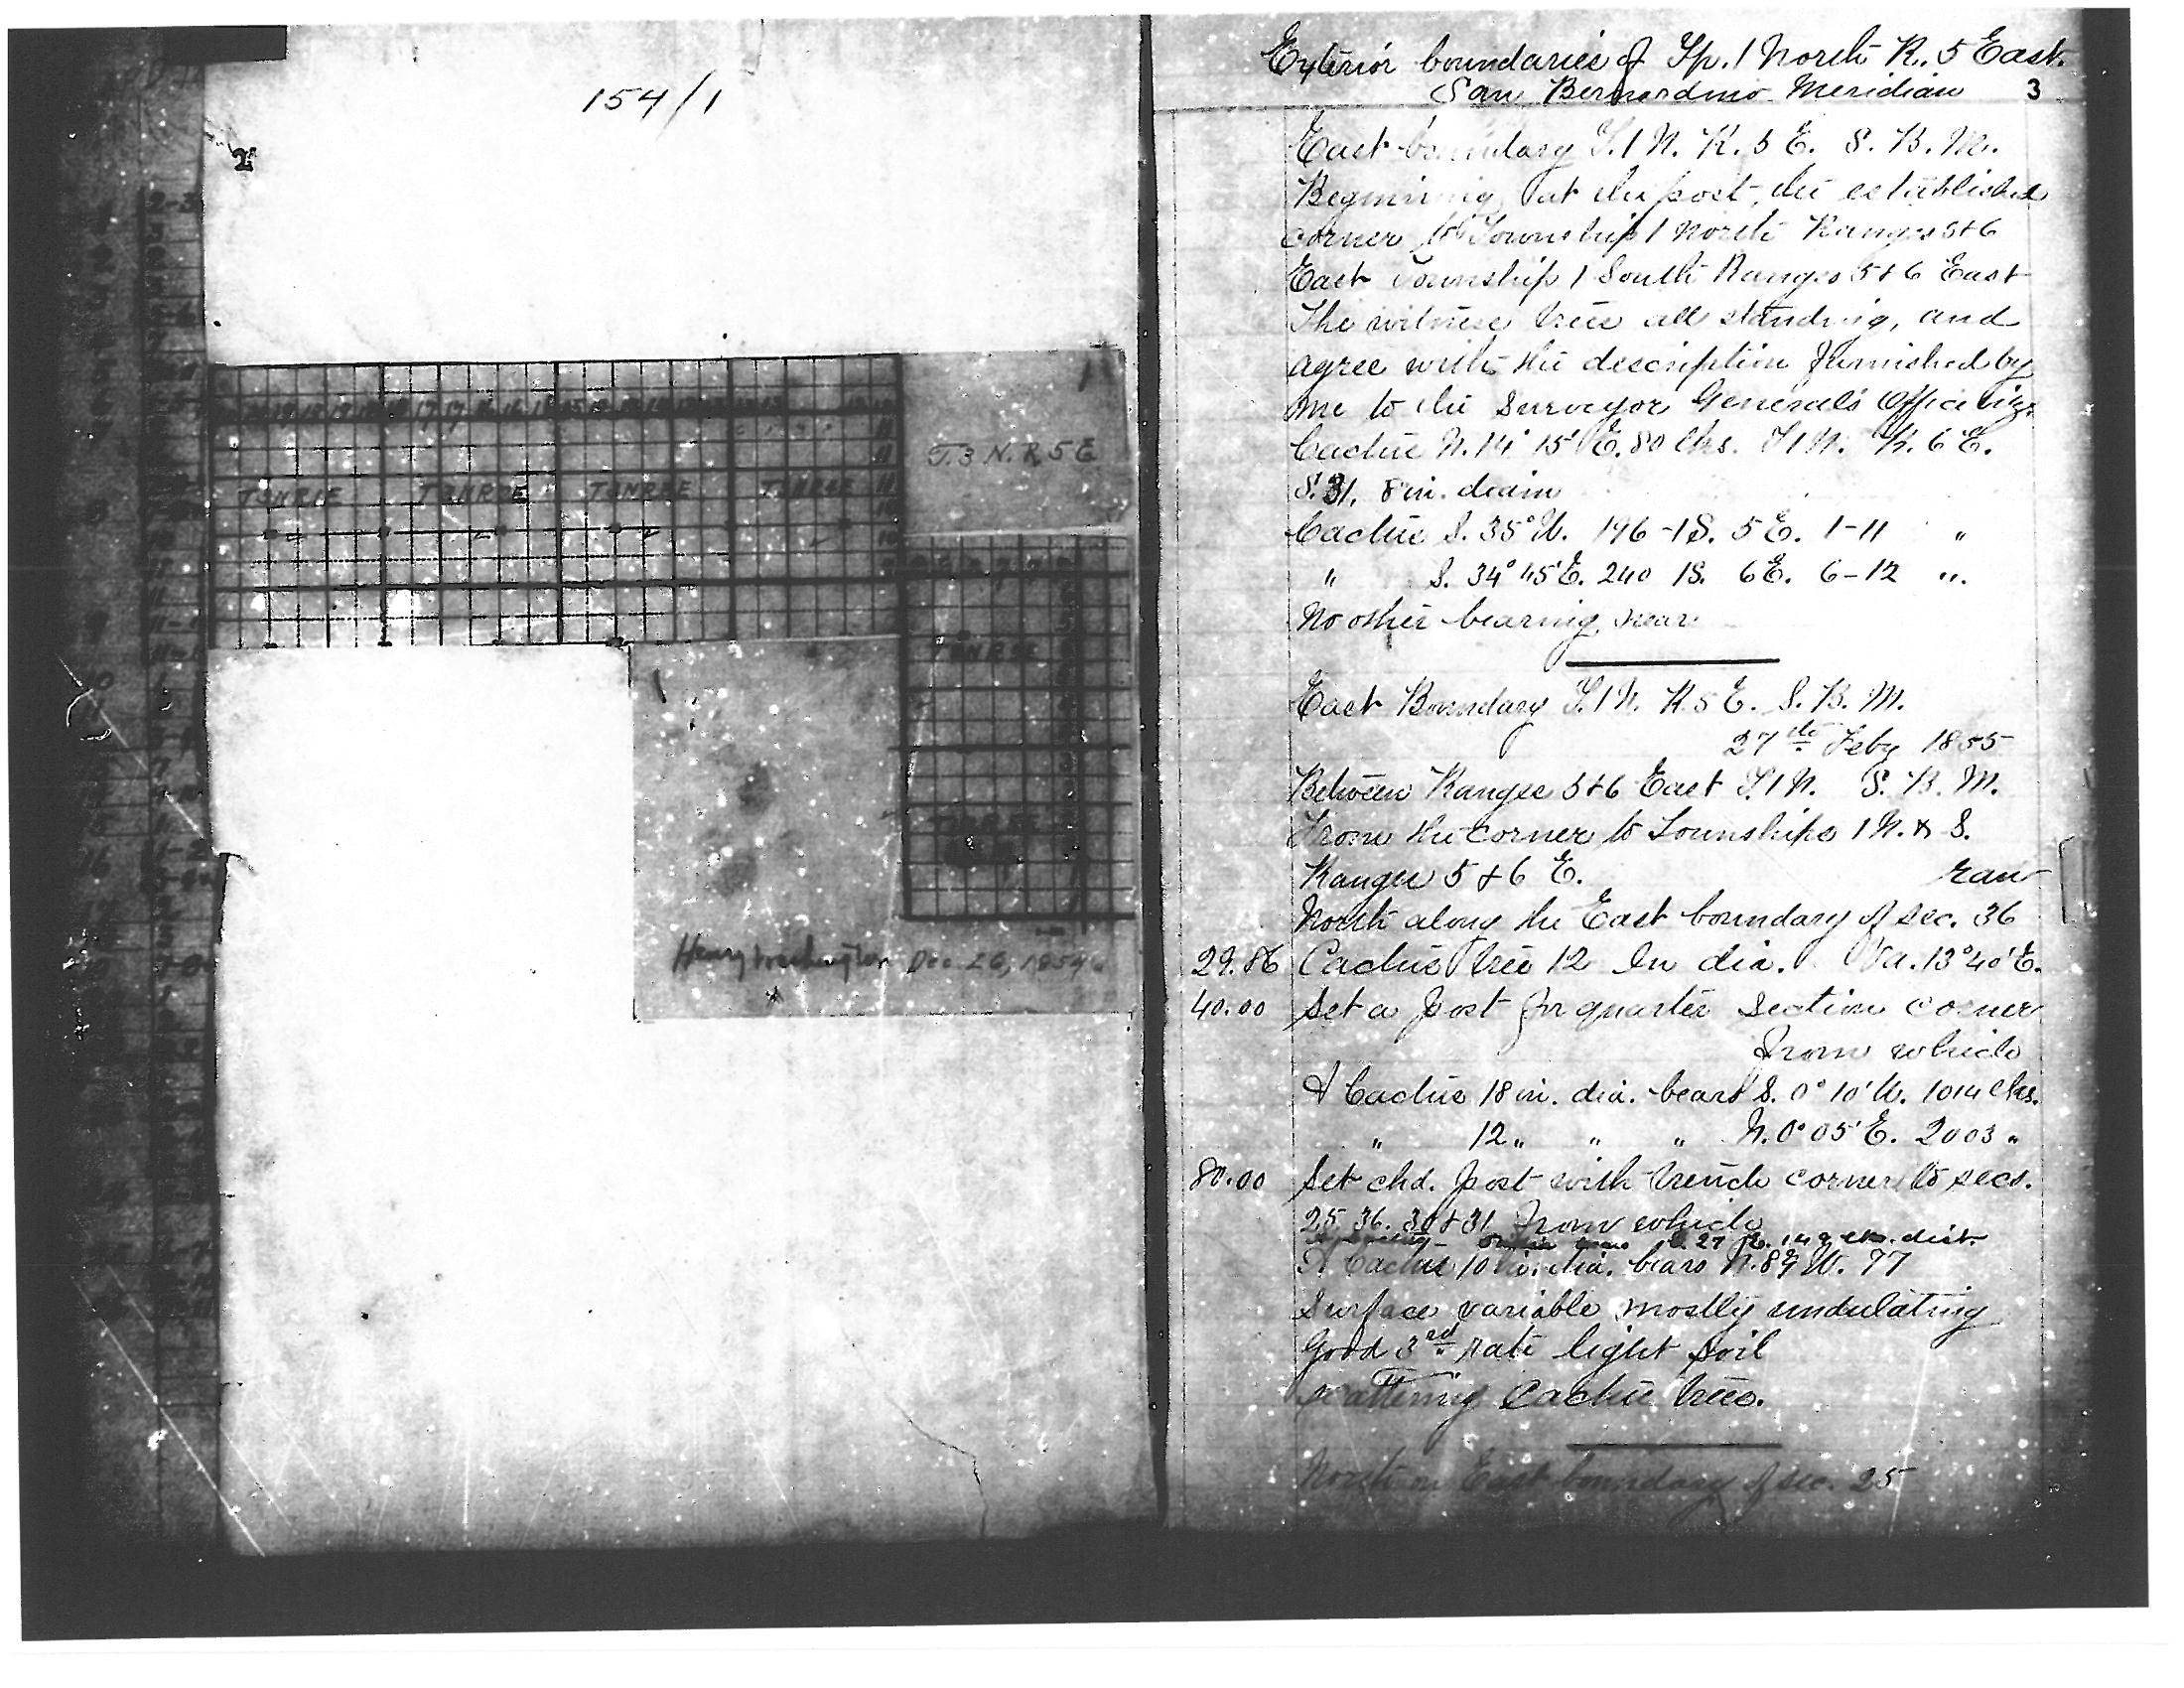 154/1
2
T.3 N. R. 5 E
1
Henry Washington Dec 26, 1854
Exterior boundaries of Tp. 1 North R. 5 East.
San Bernardino Meridian 3
East boundary T. 1 N. R. 5 E. S. B. M.
Beginning at the post, the established
corner to Township 1 North Ranges 5 & 6
East Township 1 South Ranges 5 & 6 East
The witness trees all standing, and
agree with the description furnished by
me to the Surveyor General's Office viz.
Cactus N. 14° 15' E. 80 lks. T 1 N. R. 6 E.
S. 31, 8 in. diam
Cactus S. 35° W. 196 - 1 S. 5 E. 1-11 "
" S. 34° 45' E. 240 1 S. 6 E. 6-12 "
No other bearing near
East Boundary T. 1 N. R. 5 E. S. B. M.
27th Feby 1855
Between Ranges 5 & 6 East T. 1 N. S. B. M.
From the corner to Townships 1 N. & S.
Ranges 5 & 6 E. ran
North along the East boundary of sec. 36
29.86 Cactus tree 12 In dia. Va. 13° 40' E.
40.00 Set a post for quarter section corner
from which
A Cactus 18 in. dia. bears S. 0° 10' W. 1014 lks.
" 12 " " " N. 0° 05' E. 2003 "
80.00 Set chd. post with trench corner to secs.
25, 36, 30 & 31 from which
27 E. 149 lks. dist.
A Cactus 10 in. dia. bears N. 89 W. 77
Surface variable mostly undulating
Good 3rd rate light soil
scattering Cactus trees.
North on East boundary of sec. 25